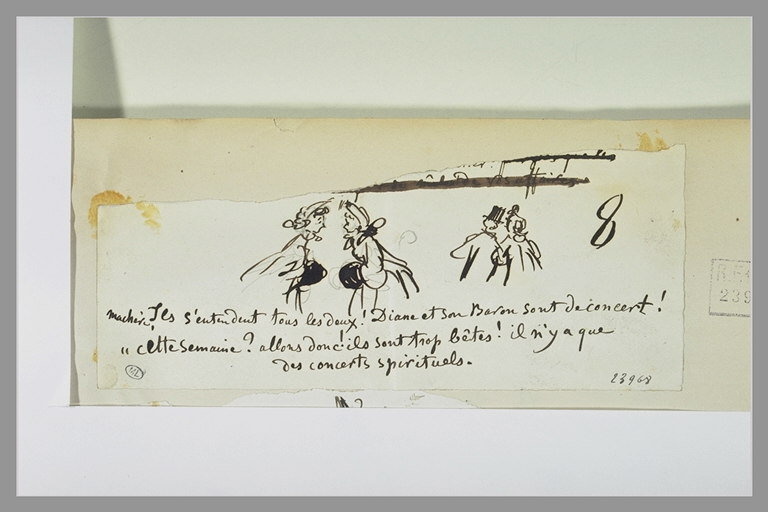 8
ma chère, Ils s'entendent tous les deux! Diane et son Baron sont de concert!
" cette semaine? allons donc! ils sont trop bêtes! il n'y a que
des concerts spirituels.
ML
23968
R.F.
239